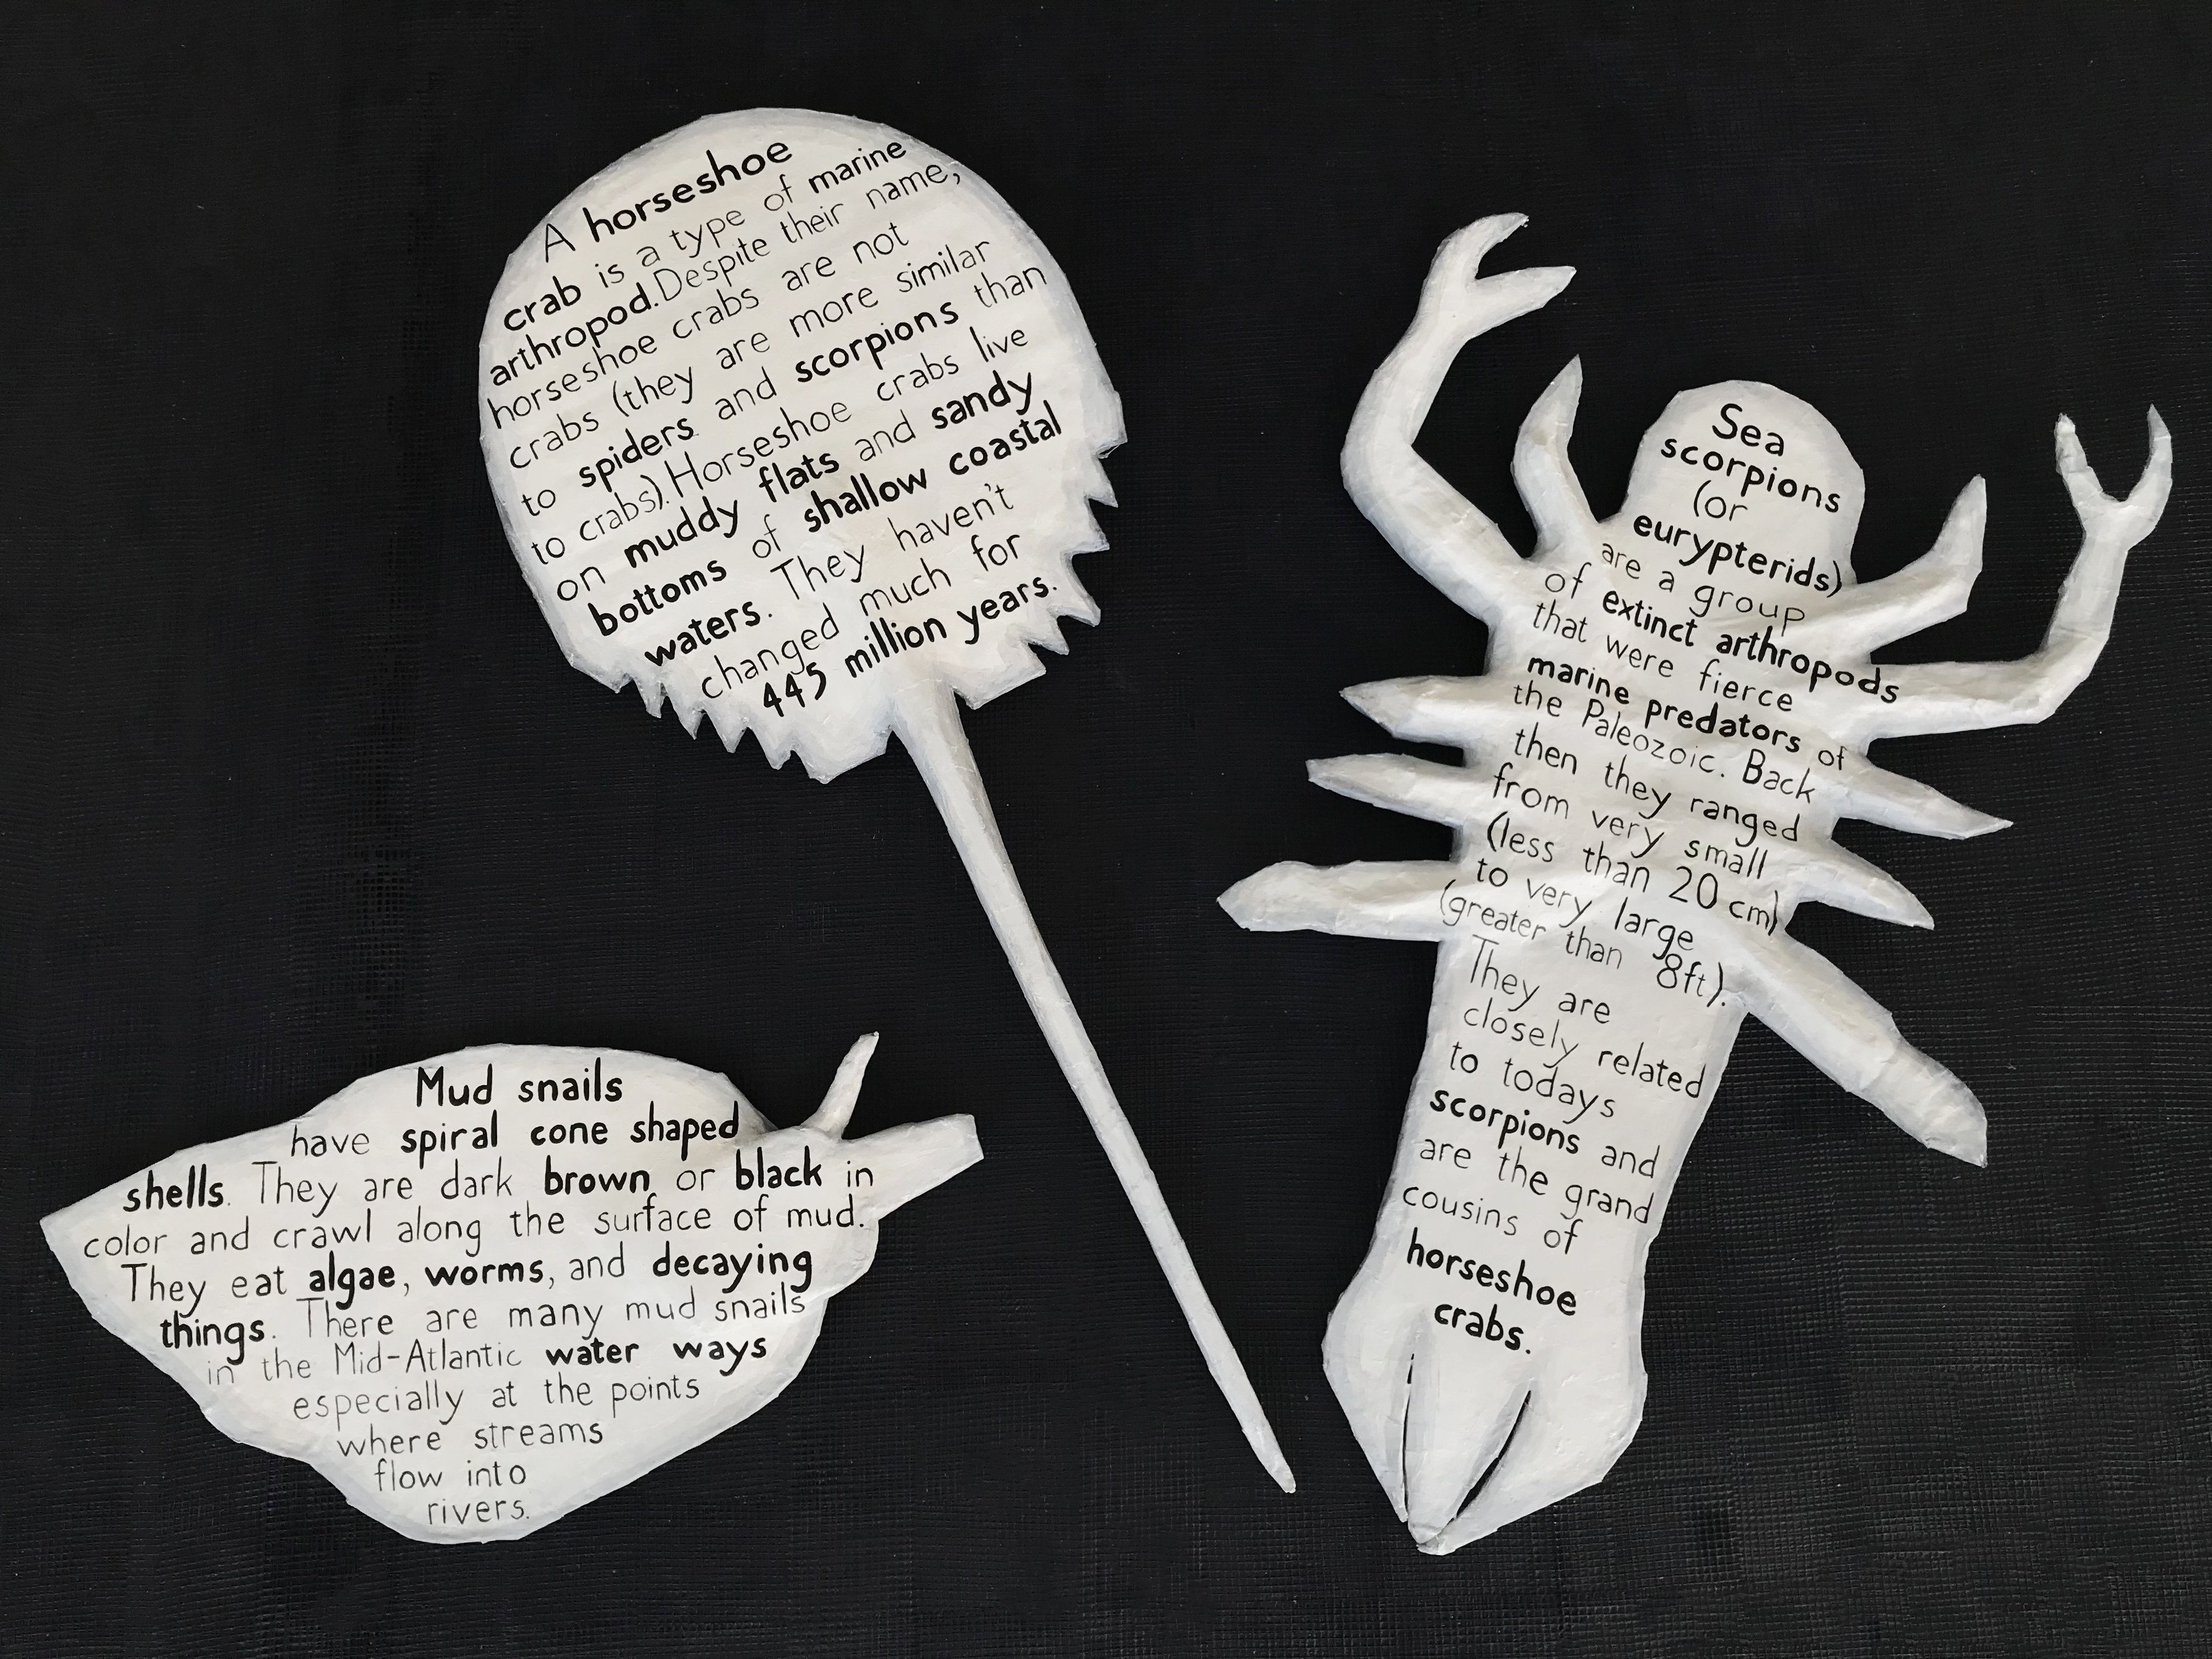 A horseshoe
crab is a type of marine
arthropod. Despite their name,
horseshoe crabs are not
crabs (they are more similar
to spiders and scorpions than
to crabs). Horseshoe crabs live
on muddy flats and sandy
bottoms of shallow coastal
waters. They haven't
changed much for
445 million years.
Sea
scorpions
(or
eurypterids)
are a group
of extinct arthropods
that were fierce
marine predators of
the Paleozoic. Back
then they ranged
from very small
(less than 20 cm)
to very large
(greater than 8ft).
They are
closely related
to todays
scorpions and
are the grand
cousins of
horseshoe
crabs.
Mud snails
have spiral cone shaped
shells. They are dark brown or black in
color and crawl along the surface of mud.
They eat algae, worms, and decaying
things. There are many mud snails
in the Mid-Atlantic water ways
especially at the points
where streams
flow into
rivers.